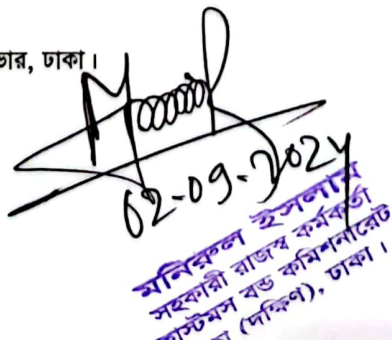 ভার, ঢাকা।
02-09-2024
মনিরুল ইসলাম
সহকারী রাজস্ব কর্মকর্তা
কাস্টমস বন্ড কমিশনারেট
(দক্ষিণ), ঢাকা।